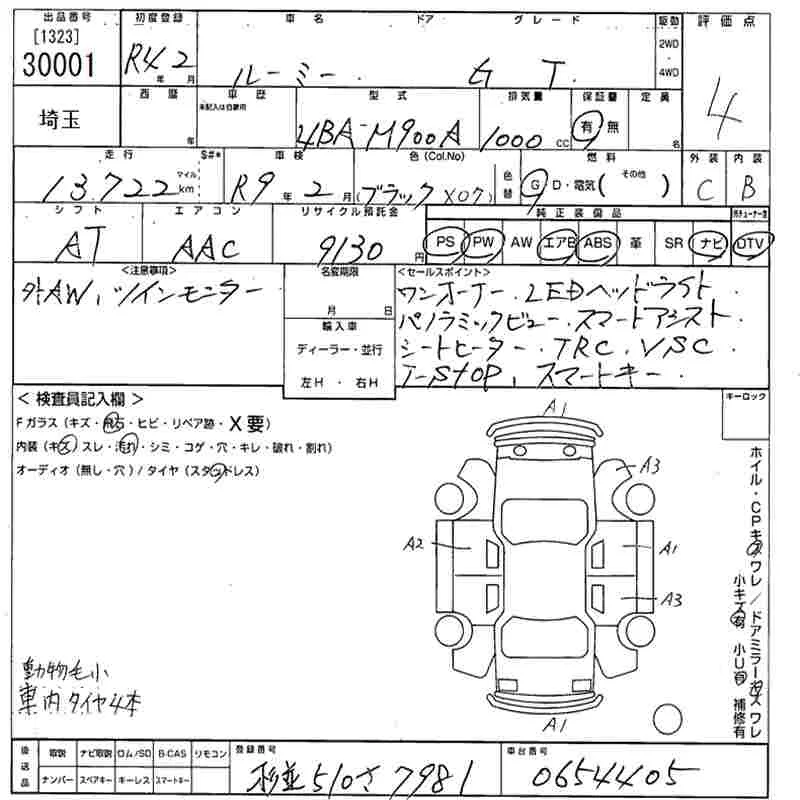 出品番号 初度登録 車名 ドア グレード 駆動 評価点
[1323]
30001 R4年2月 ルーミー G T 2WD 4WD 4
埼玉 西暦 年 車歴 未記入は自家用 型式 排気量 保証書 定員
4BA-M900A 1000cc 有 無 名
走行 マイル S#* 車検 色(Col.No) 色替 燃料 外装 内装
13,722km R9年2月 (ブラック X07) G D・電気(その他 ) C B
シフト エアコン リサイクル預託金 純正装備品
AT AAC 9130円 PS PW AW エアB ABS 革 SR ナビ DTV
<注意事項> 名変期限 <セールスポイント>
外AW、ツインモニター 月 日 ワンオーナー.LEDヘッドライト.
輸入車 パノラミックビュー.スマートアシスト.
ディーラー・並行 シートヒーター.TRC.VSC.
左H・右H I-STOP、スマートキー.
<検査員記入欄> キーロック
Fガラス(キズ・飛石・ヒビ・リペア跡・X要)
内装(キズ・スレ・汚れ・シミ・コゲ・穴・キレ・破れ・割れ)
オーディオ(無し・穴)/タイヤ(スタッドレス)
A1
A3
A2
A1
A3
A1
ホイル・CPキズワレ/ドアミラーキズワレ
小キズ有 小U有 補修有
動物毛小
車内タイヤ4本
後送品 取説 ナビ取説 ロム/SD B-CAS リモコン 登録番号 車台番号
ナンバー スペアキー キーレス スマートキー 杉並510さ7981 0654405